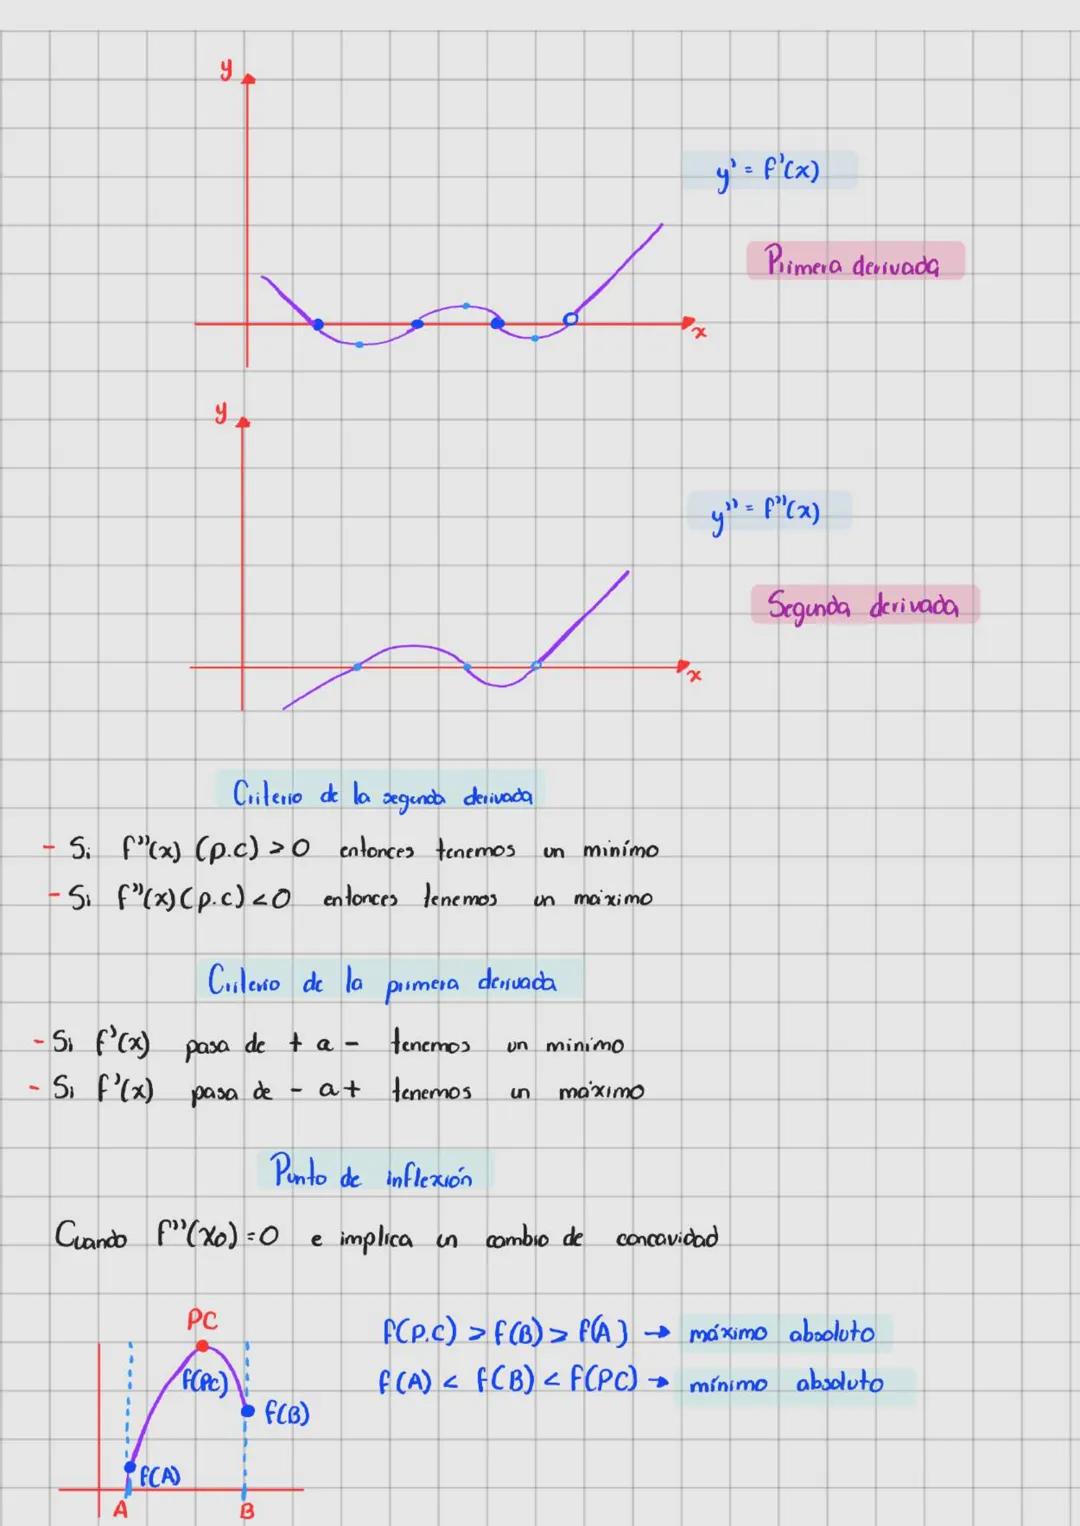 y
y' = f'(x)
Primera derivada
x
y
y'' = f''(x)
Segunda derivada
x
Criterio de la segunda derivada
- Si f''(x) (p.c) > 0 entonces tenemos un minímo
- Si f''(x) (p.c) < 0 entonces tenemos un máximo
Criterio de la primera derivada
- Si f'(x) pasa de + a - tenemos un minimo
- Si f'(x) pasa de - a + tenemos un máximo
Punto de inflexión
Cuando f''(x0) = 0 e implica un cambio de concavidad
PC
f(P.C) > f(B) > f(A) → máximo absoluto
f(PC)
f(A) < f(B) < f(PC) → mínimo absoluto
f(B)
f(A)
A
B